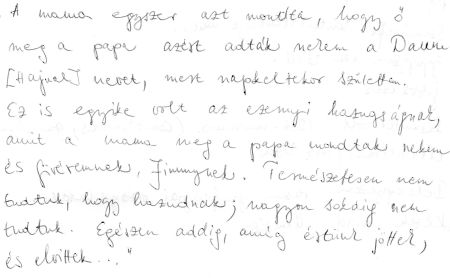 A mama egyszer azt mondta, hogy ő
meg a papa azért adták nekem a Dawn
[Hajnal] nevet, mert napkeltekor születtem.
Ez is egyike volt az ezernyi hazugságnak,
amit a mama meg a papa mondtak nekem
és fivéremnek, Jimmynek. Természetesen nem
tudtuk, hogy hazudnak; nagyon sokáig nem
tudtuk. Egészen addig, amíg értünk jöttek,
és elvittek..."